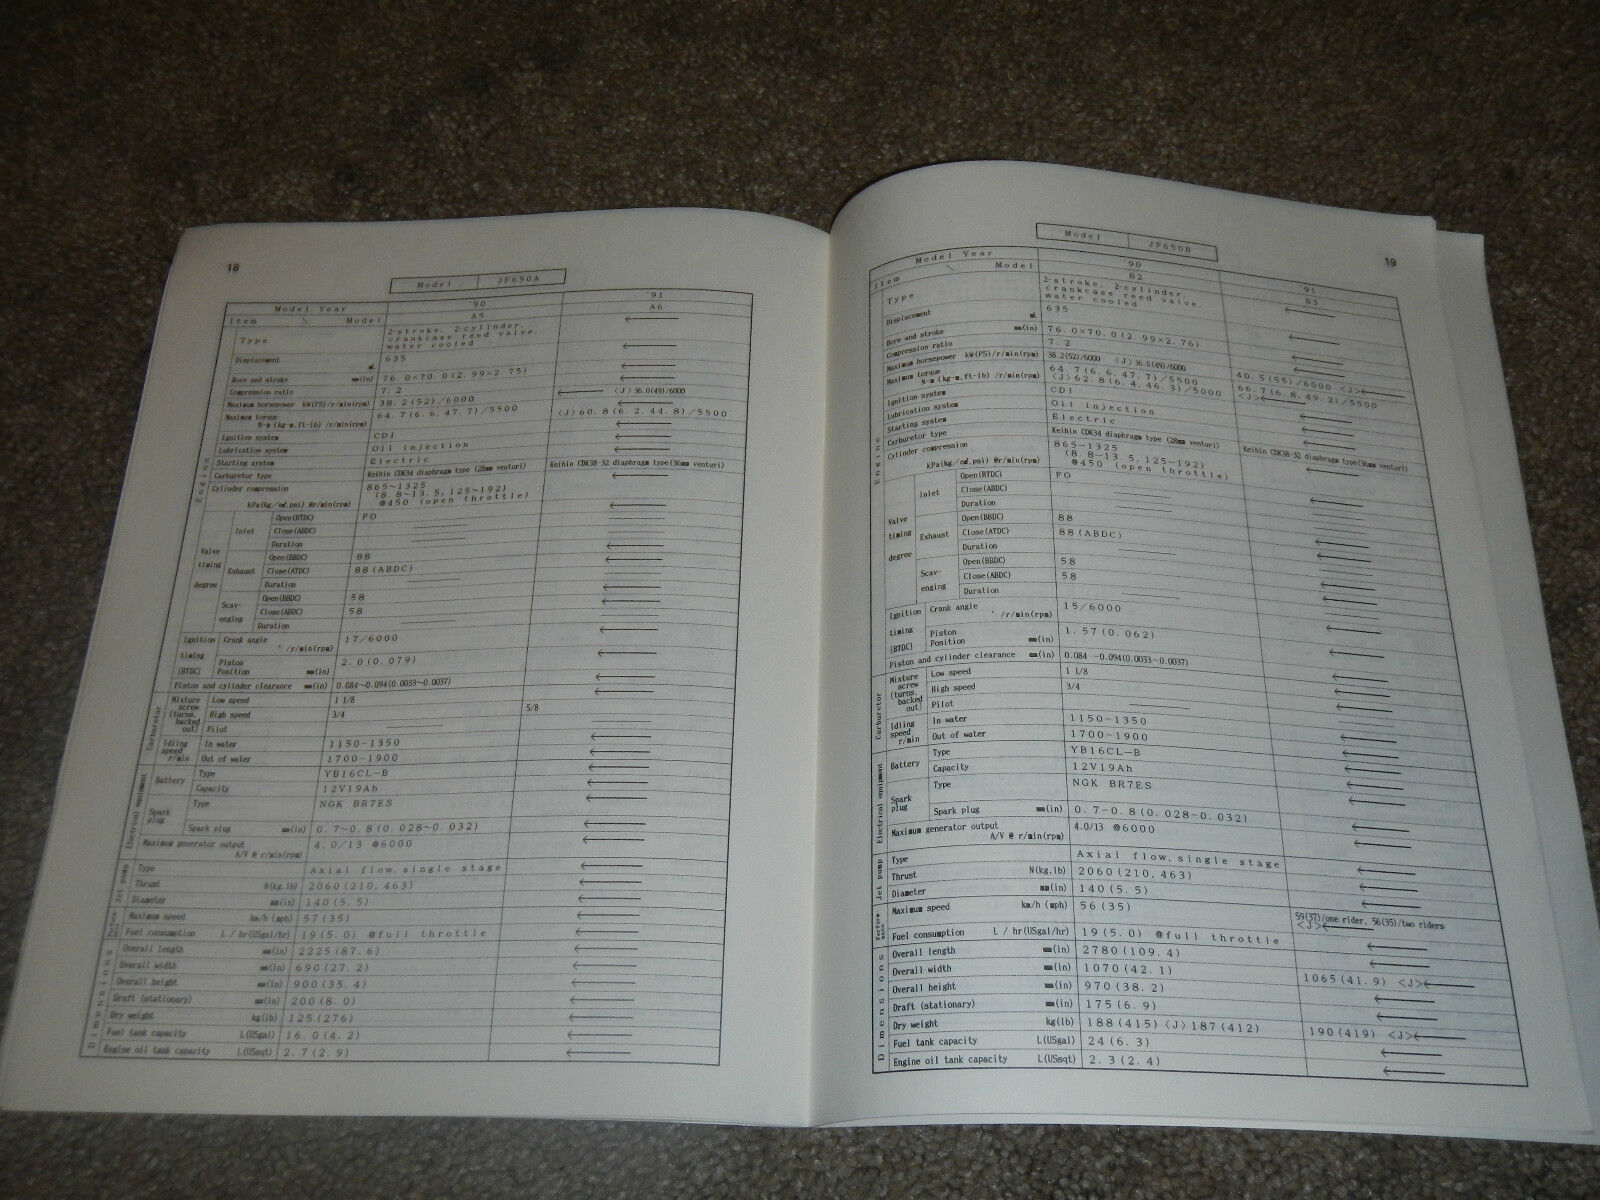 18
Model JF650A
Model Year '90 '91
Item Model A5 A6
Type 2-stroke, 2-cylinder, ←
crankcase reed valve,
water cooled
Displacement mL 635 ←
Bore and stroke mm(in) 76.0×70.0(2.99×2.75) ←
Compression ratio 7.2 ←
Maximum horsepower kW(PS)/r/min(rpm) 38.2(52)/6000 ← (J)36.0(49)/6000
Maximum torque 64.7(6.6, 47.7)/5500 ←
N-m (kg-m,ft-lb) /r/min(rpm) (J)60.8(6.2, 44.8)/5500
Ignition system CDI ←
Lubrication system Oil injection ←
Starting system Electric ←
Carburetor type Keihin CDK34 diaphragm type (28mm venturi) Keihin CDK38-32 diaphragm type(36mm venturi)
Cylinder compression 865~1325 ←
(8.8~13.5, 125~192)
kPa(kg/cm²,psi) @r/min(rpm) @450 (open throttle)
Engine
Valve timing degree
Inlet Open(BTDC) FO ←
Close(ABDC)
Duration
Exhaust Open(BBDC) 88 ←
Close(ATDC) 88(ABDC) ←
Duration
Scavenging Open(BBDC) 58 ←
Close(ABDC) 58 ←
Duration
Ignition timing (BTDC) Crank angle °/r/min(rpm) 17/6000 ←
Piston Position mm(in) 2.0(0.079) ←
Piston and cylinder clearance mm(in) 0.084~0.094(0.0033~0.0037) ←
Carburetor
Mixture screw (turns, backed out) Low speed 1 1/8 ←
High speed 3/4 5/8
Pilot
Idling speed r/min In water 1150-1350 ←
Out of water 1700-1900 ←
Electrical equipment
Battery Type YB16CL-B ←
Capacity 12V19Ah ←
Spark plug Type NGK BR7ES ←
Spark plug mm(in) 0.7~0.8(0.028~0.032) ←
Maximum generator output A/V @ r/min(rpm) 4.0/13 @6000 ←
Jet pump
Type Axial flow, single stage ←
Thrust N(kg,lb) 2060(210, 463) ←
Diameter mm(in) 140(5.5) ←
Performance
Maximum speed km/h (mph) 57(35) ←
Fuel consumption L / hr(USgal/hr) 19(5.0) @full throttle ←
Dimensions
Overall length mm(in) 2225(87.6) ←
Overall width mm(in) 690(27.2) ←
Overall height mm(in) 900(35.4) ←
Draft (stationary) mm(in) 200(8.0) ←
Dry weight kg(lb) 125(276) ←
Fuel tank capacity L(USgal) 16.0(4.2) ←
Engine oil tank capacity L(USqt) 2.7(2.9) ←
19
Model JF650B
Model Year 90 '91
Item Model B2 B3
Type 2-stroke, 2-cylinder, ←
crankcase reed valve,
water cooled
Displacement mL 635 ←
Bore and stroke mm(in) 76.0×70.0(2.99×2.76) ←
Compression ratio 7.2 ←
Maximum horsepower kW(PS)/r/min(rpm) 38.2(52)/6000 (J)36.0(49)/6000 40.5(55)/6000 (J)←
Maximum torque 64.7(6.6, 47.7)/5500 66.7(6.8, 49.2)/5500
N-m (kg-m,ft-lb) /r/min(rpm) (J)62.8(6.4, 46.3)/5000 (J)←
Ignition system CDI ←
Lubrication system Oil injection ←
Starting system Electric ←
Carburetor type Keihin CDK34 diaphragm type (28mm venturi) Keihin CDK38-32 diaphragm type(36mm venturi)
Cylinder compression 865-1325 ←
(8.8-13.5, 125-192)
kPa(kg/cm²,psi) @r/min(rpm) @450 (open throttle)
Engine
Valve timing degree
Inlet Open(BTDC) FO ←
Close(ABDC)
Duration
Exhaust Open(BBDC) 88 ←
Close(ATDC) 88(ABDC) ←
Duration
Scavenging Open(BBDC) 58 ←
Close(ABDC) 58 ←
Duration
Ignition timing (BTDC) Crank angle °/r/min(rpm) 15/6000 ←
Piston Position mm(in) 1.57(0.062) ←
Piston and cylinder clearance mm(in) 0.084 ~0.094(0.0033~0.0037) ←
Carburetor
Mixture screw (turns, backed out) Low speed 1 1/8 ←
High speed 3/4 ←
Pilot
Idling speed r/min In water 1150-1350 ←
Out of water 1700-1900 ←
Electrical equipment
Battery Type YB16CL-B ←
Capacity 12V19Ah ←
Spark plug Type NGK BR7ES ←
Spark plug mm(in) 0.7-0.8(0.028-0.032) ←
Maximum generator output A/V @ r/min(rpm) 4.0/13 @6000 ←
Jet pump
Type Axial flow, single stage ←
Thrust N(kg,lb) 2060(210, 463) ←
Diameter mm(in) 140(5.5) ←
Performance
Maximum speed km/h (mph) 56(35) 59(37)/one rider, 56(35)/two riders (J)←
Fuel consumption L / hr(USgal/hr) 19(5.0) @full throttle ←
Dimensions
Overall length mm(in) 2780(109.4) ←
Overall width mm(in) 1070(42.1) 1065(41.9) (J)←
Overall height mm(in) 970(38.2) ←
Draft (stationary) mm(in) 175(6.9) ←
Dry weight kg(lb) 188(415) (J)187(412) 190(419) (J)←
Fuel tank capacity L(USgal) 24(6.3) ←
Engine oil tank capacity L(USqt) 2.3(2.4) ←